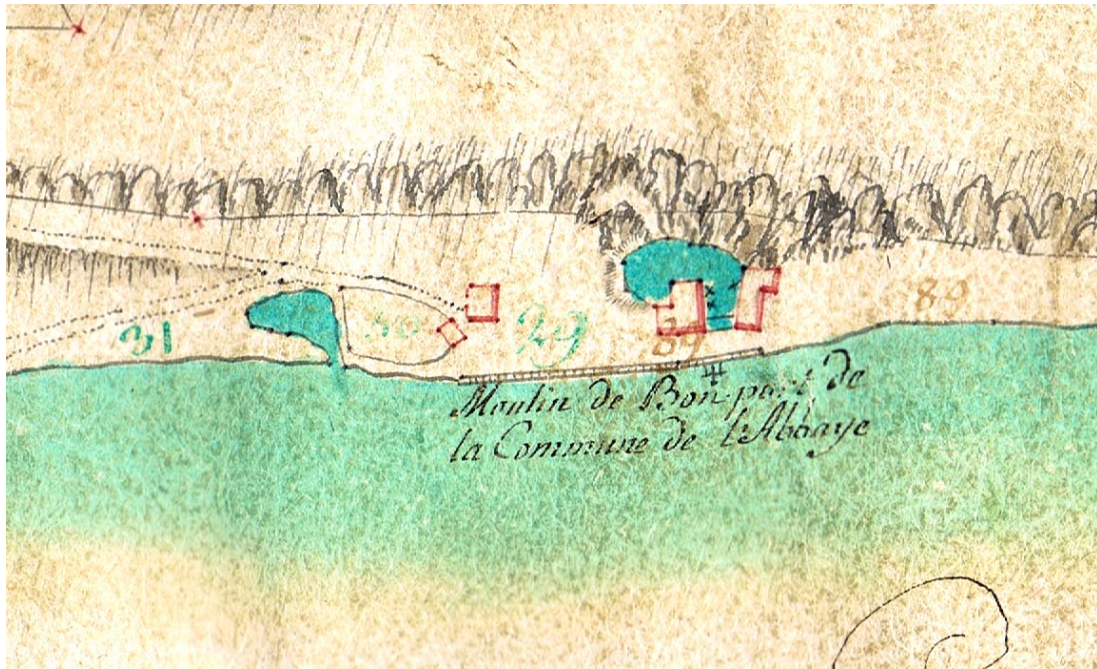 89
31
30
29
89
Moulin de Bon port de
la Commune de l'Abbaye